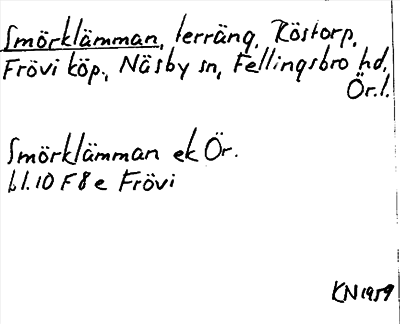 Smörklämman, terräng, Röstorp,
Frövi köp., Näsby sn, Fellingsbro hd,
Ör.l.
Smörklämman ek Ör.
bl. 10 F 8 e Frövi
KN 1959